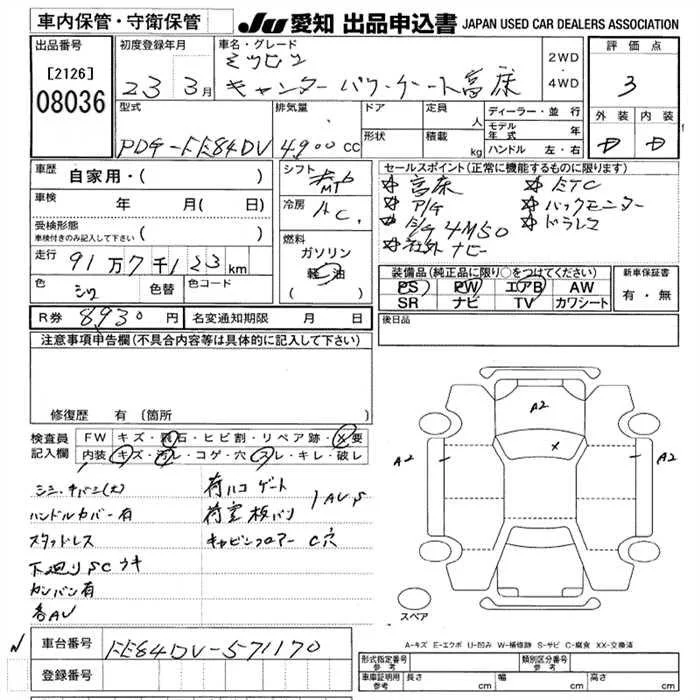 車内保管・守衛保管
JU 愛知 出品申込書 JAPAN USED CAR DEALERS ASSOCIATION
出品番号
[2126]
08036
初度登録年月
23 3月
車名・グレード
ミツビシ
キャンター パワーゲート 高床
2WD
・
4WD
評価点
3
外装 内装
D D
型式
PDG-FE84DV
排気量
4900 CC
ドア
形状
定員
人
積載
kg
ディーラー・並行
モデル年式 年
ハンドル 左・右
車歴
自家用・( )
車検
年 月( 日)
受検形態
車検付きのみ記入して下さい ( )
走行
91万7千123km
色
シロ
色替
色コード
シフト
MT6
冷房
AC
燃料
ガソリン
軽油
( )
セールスポイント(正常に機能するものに限ります)
高床 ETC
P/G バックモニター
E/G 4M50 ドラレコ
社外ナビ
装備品(純正品に限り○をつけてください)
PS PW エアB AW
SR ナビ TV カワシート
新車保証書
有・無
R券 8930円
名変通知期限 月 日
後日品
注意事項申告欄(不具合内容等は具体的に記入して下さい)
修復歴 有(箇所 )
検査員
記入欄
FW キズ・飛石・ヒビ割・リペア跡・X要
内装 キズ・汚レ・コゲ・穴・スレ・キレ・破レ
シミ・キバミ(大)
ハンドルカバー有
スタッドレス
下廻りSCウキ
カンバン有
各AU
荷ハコ ゲート
荷室板バリ
キャビンフロアー C穴
A2
X
A2
A2
スペア
A-キズ E-エクボ U-凹み W-補修跡 S-サビ C-腐食 XX-交換済
車台番号
FE84DV-571170
登録番号
形式指定番号
参考
類別区分番号
参考
車庫証明用
参考
長さ cm
幅 cm
高さ cm